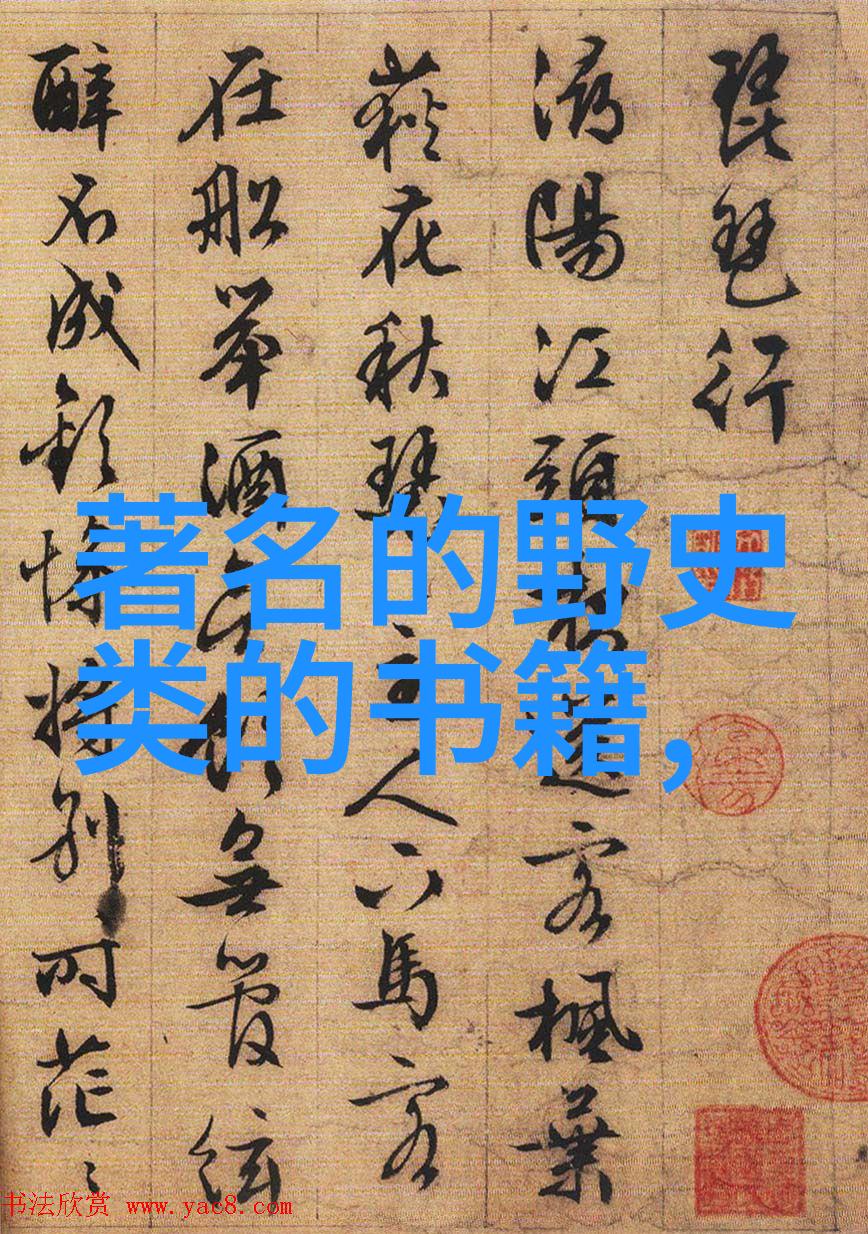 琵琶行
潯陽江頭夜送客楓葉
荻花秋瑟主人下馬客
在船舉酒欲飲無管絃
醉不成歡慘將別時茫〻
著名的野史
类的书籍,
书法欣赏 www.yac8.com